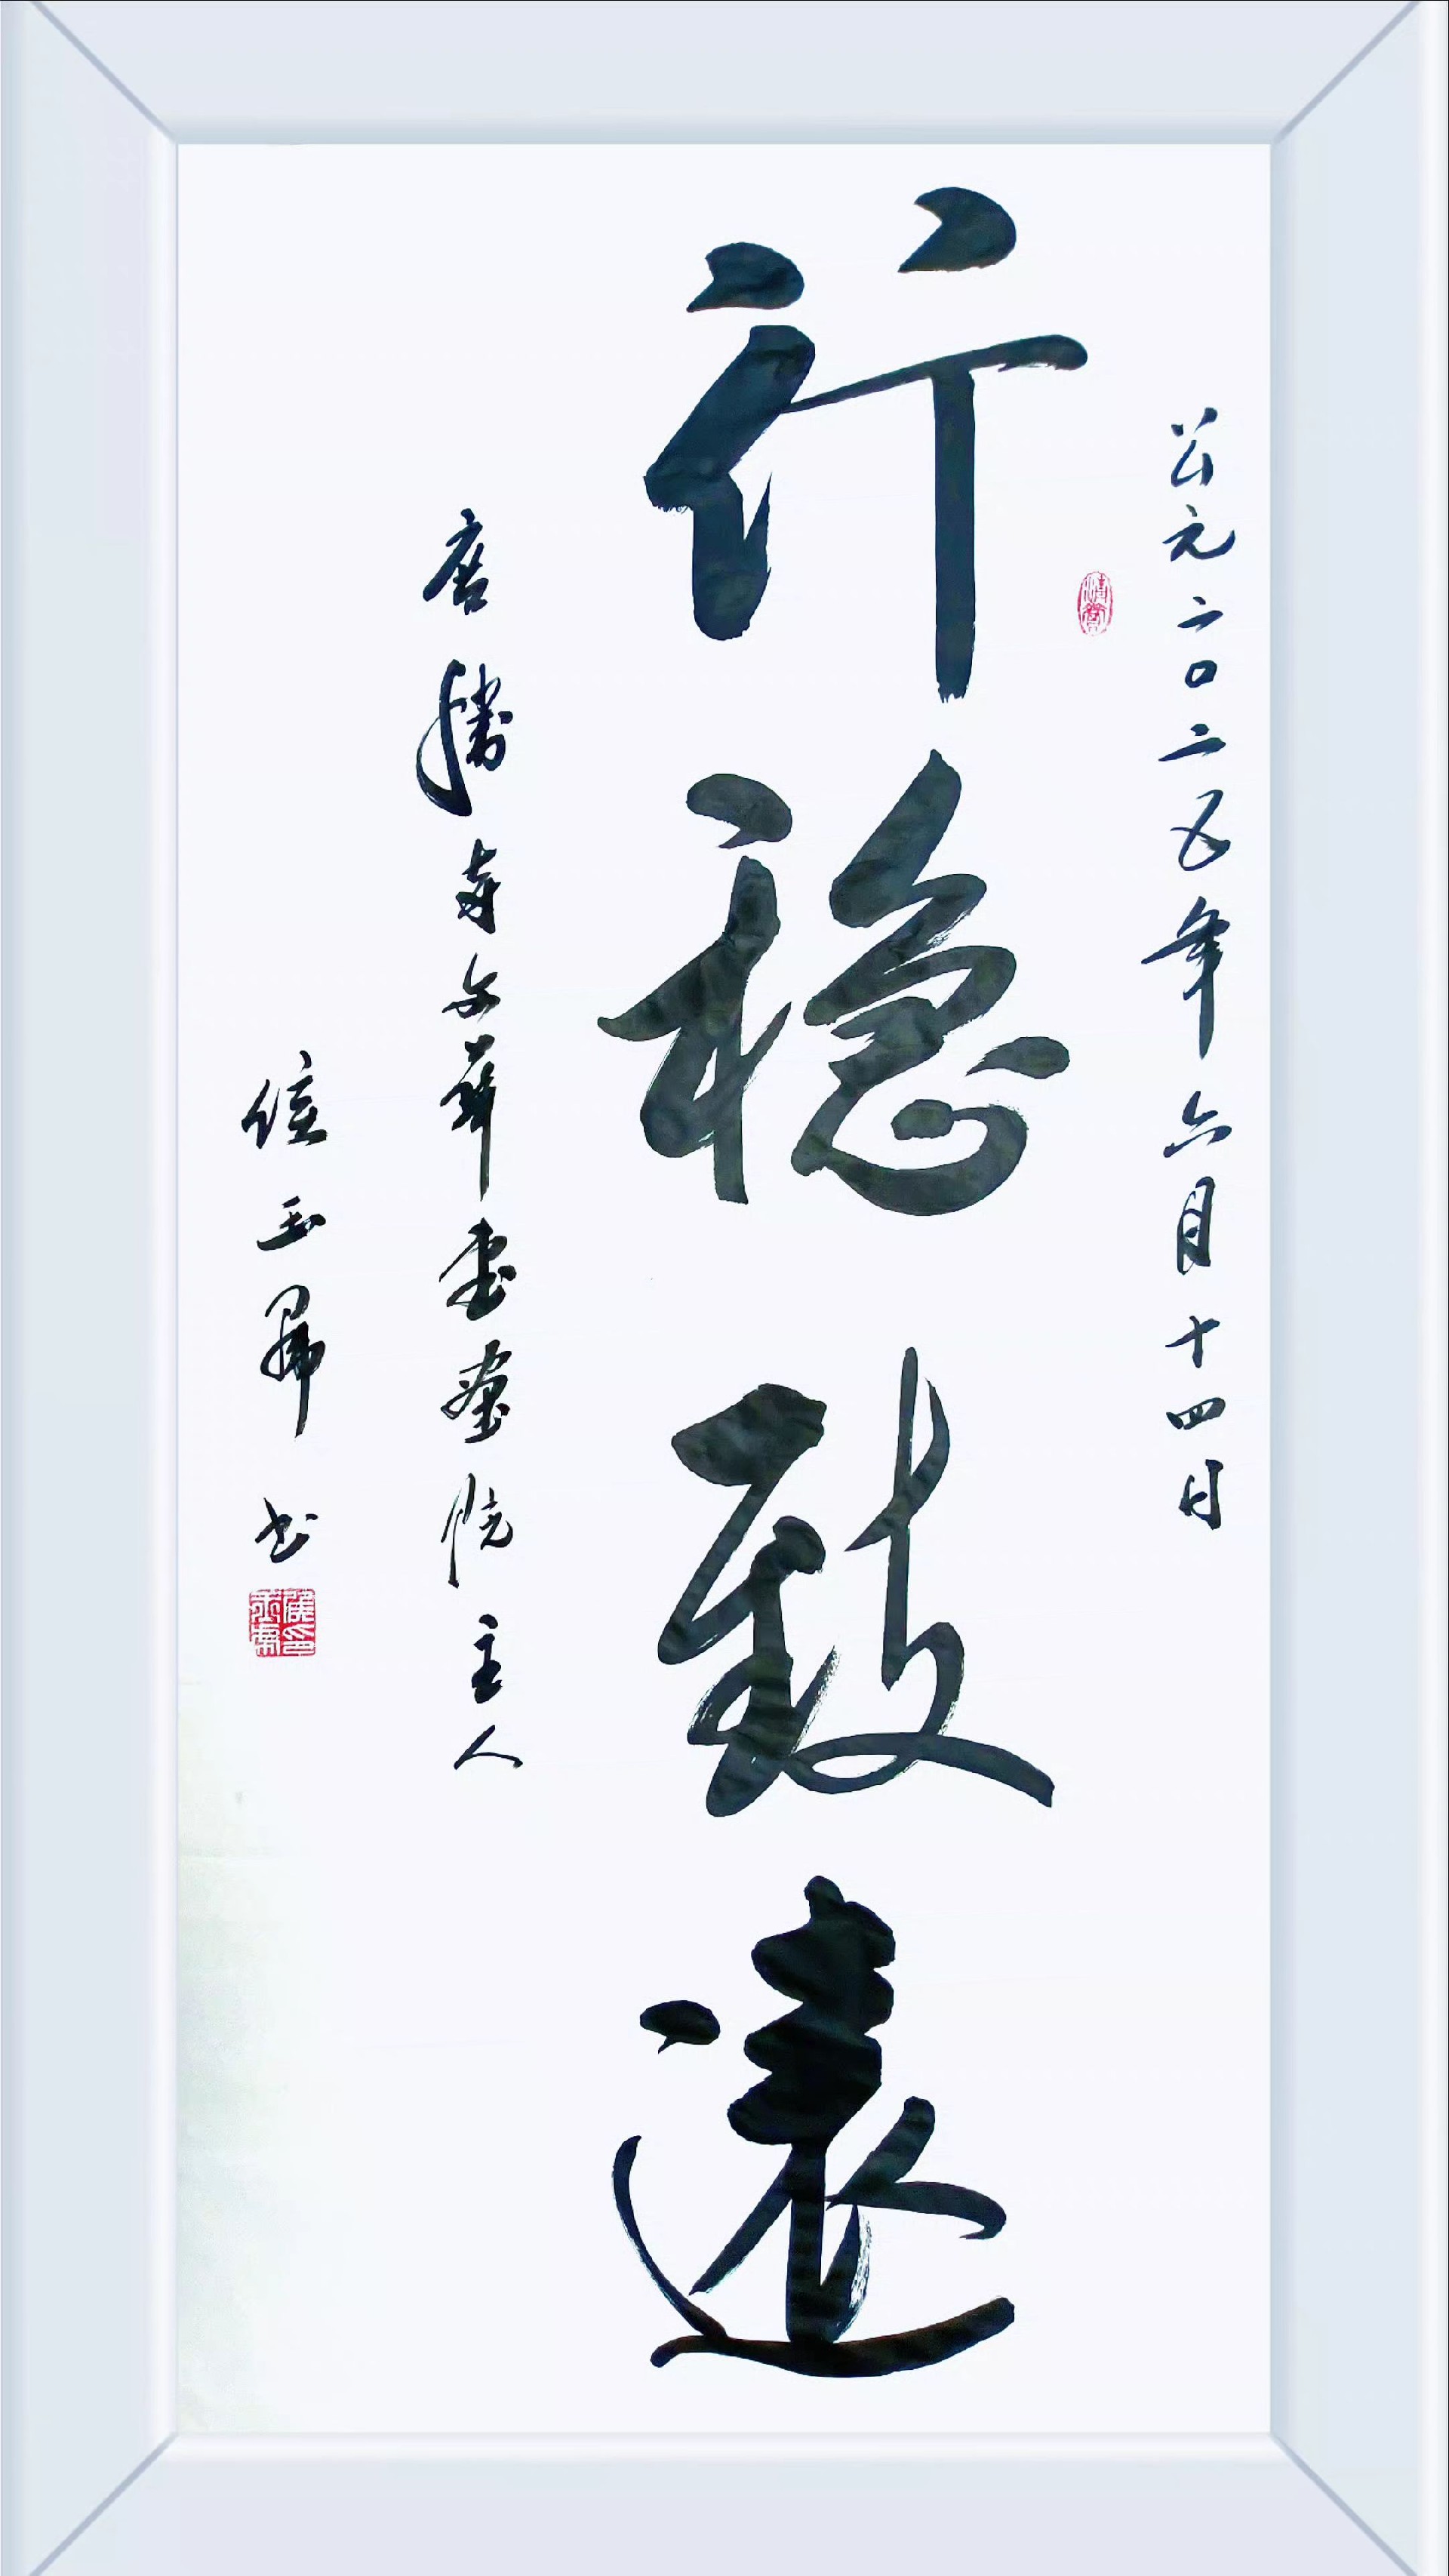 公元二〇二五年六月十四日
行稳致远
唐 寺文华书画院主人
玉 书